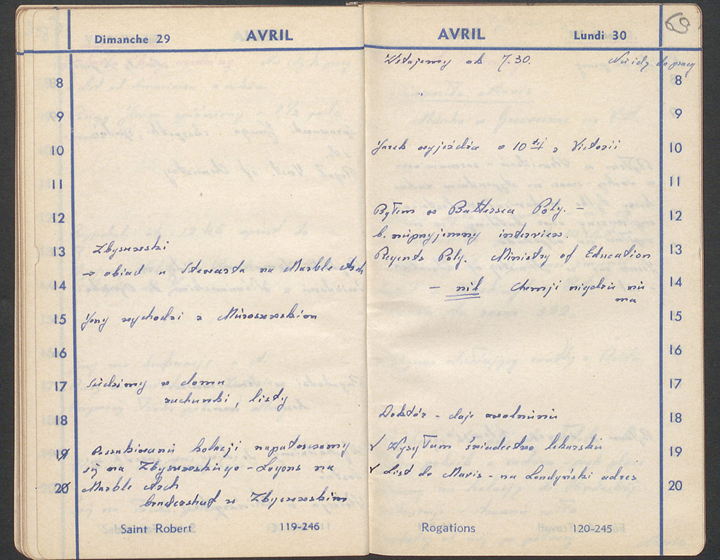 Dimanche 29 AVRIL
8
9
10
11
12
13 Zbyszewski
→ obiad u Stewarta na Marble Arch
14
15 Jony wychodzi z Mieroszewskim
16
17 Siedzimy w domu
rachunki, listy
18
19 kolacji
się na Zbyszewskiego - Lyons na
20 Marble Arch
z Zbyszewskim
Saint Robert 119-246
AVRIL Lundi 30
69
Wstajemy ok 7.30. Nie idę do pracy
8
9
Jurek wyjeżdża o 10 z Victorii
10
11
Byłem w Battersea Poly. -
12
b. nieprzyjemny interview.
Regents Poly. Ministry of Education
13
- nil Chemji nigdzie nie
14
ma
15
16
17
Doktór - daje zwolnienie
18
√ Wysyłam świadectwo lekarskie
19
√ List do Maris - na Londyński adres
20
Rogations 120-245